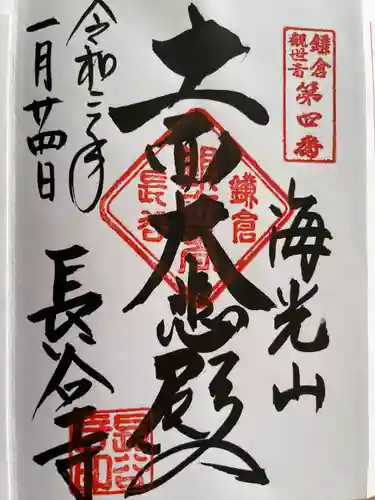 鎌倉
観世音
第四番
海光山
鎌倉
長谷
十一面大悲殿
令和二年
一月廿四日
長谷寺